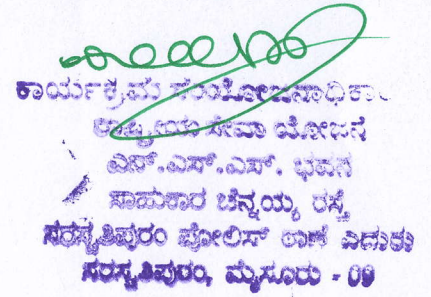 ಕಾರ್ಯಕ್ರಮ ಸಂಯೋಜನಾಧಿಕಾ
ರಾಷ್ಟ್ರೀಯ ಸೇವಾ ಯೋಜನ
ಎನ್.ಎಸ್.ಎಸ್. ಭವನ
ಸಾಹುಕಾರ ಚೆನ್ನಯ್ಯ ರಸ್ತೆ
ಸರಸ್ವತಿಪುರಂ ಪೋಲಿಸ್ ಠಾಣೆ ಎದುರು
ಸರಸ್ವತಿಪುರಂ, ಮೈಸೂರು - 09